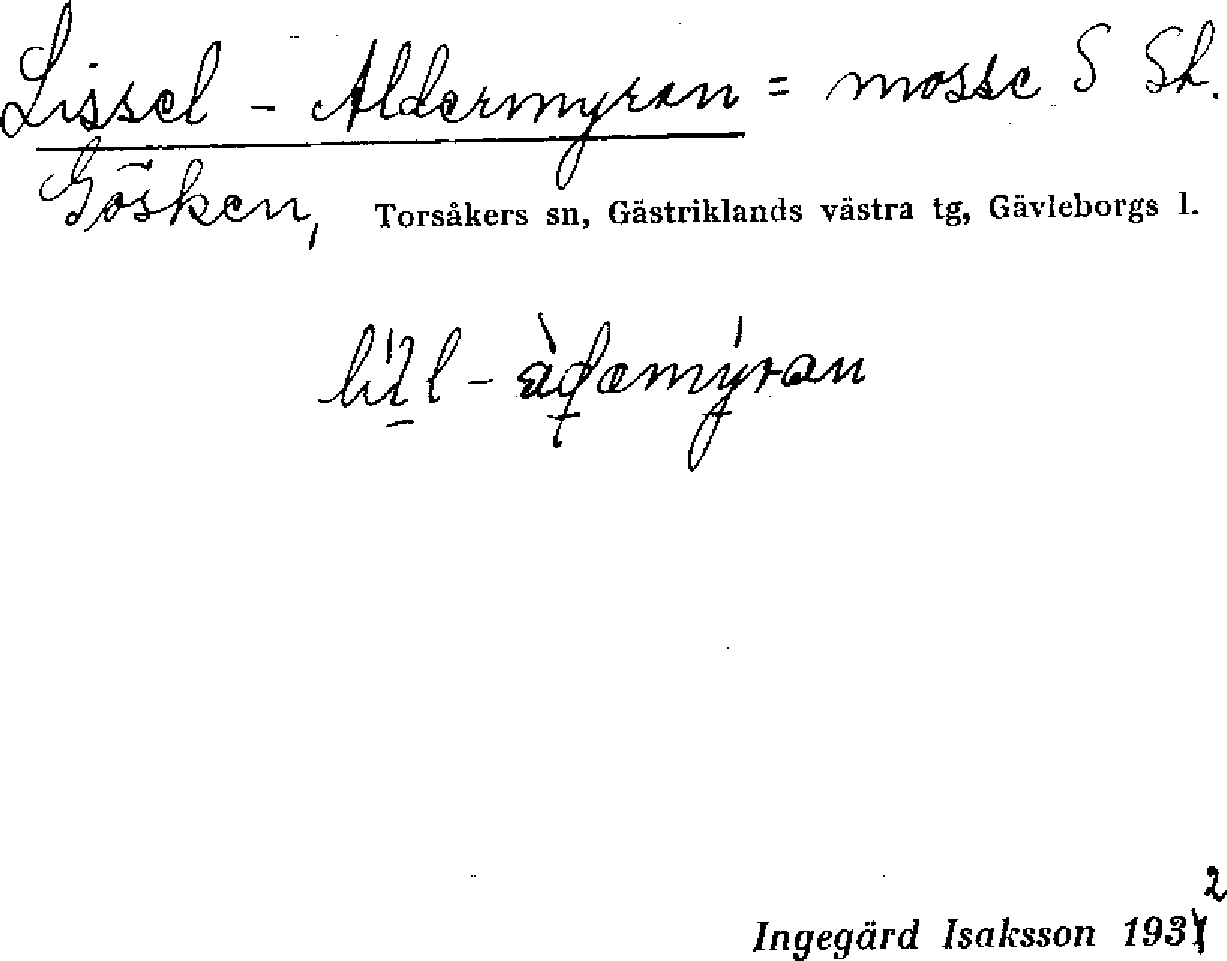 Lissel - Aldermyran = mosse S Sk.
Gösken, Torsåkers sn, Gästriklands västra tg, Gävleborgs l.
2
Ingegärd Isaksson 1931